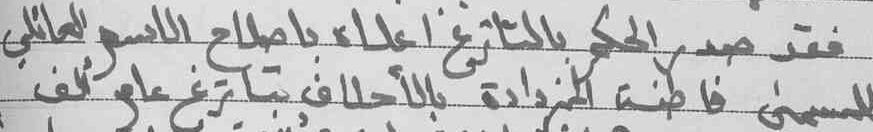 فقد صدر الحكم بالتاريخ اعلاه باصلاح الاسم العائلي
للمسمى فاطنة المزدادة بالأحلاف بتاريخ عام ألف